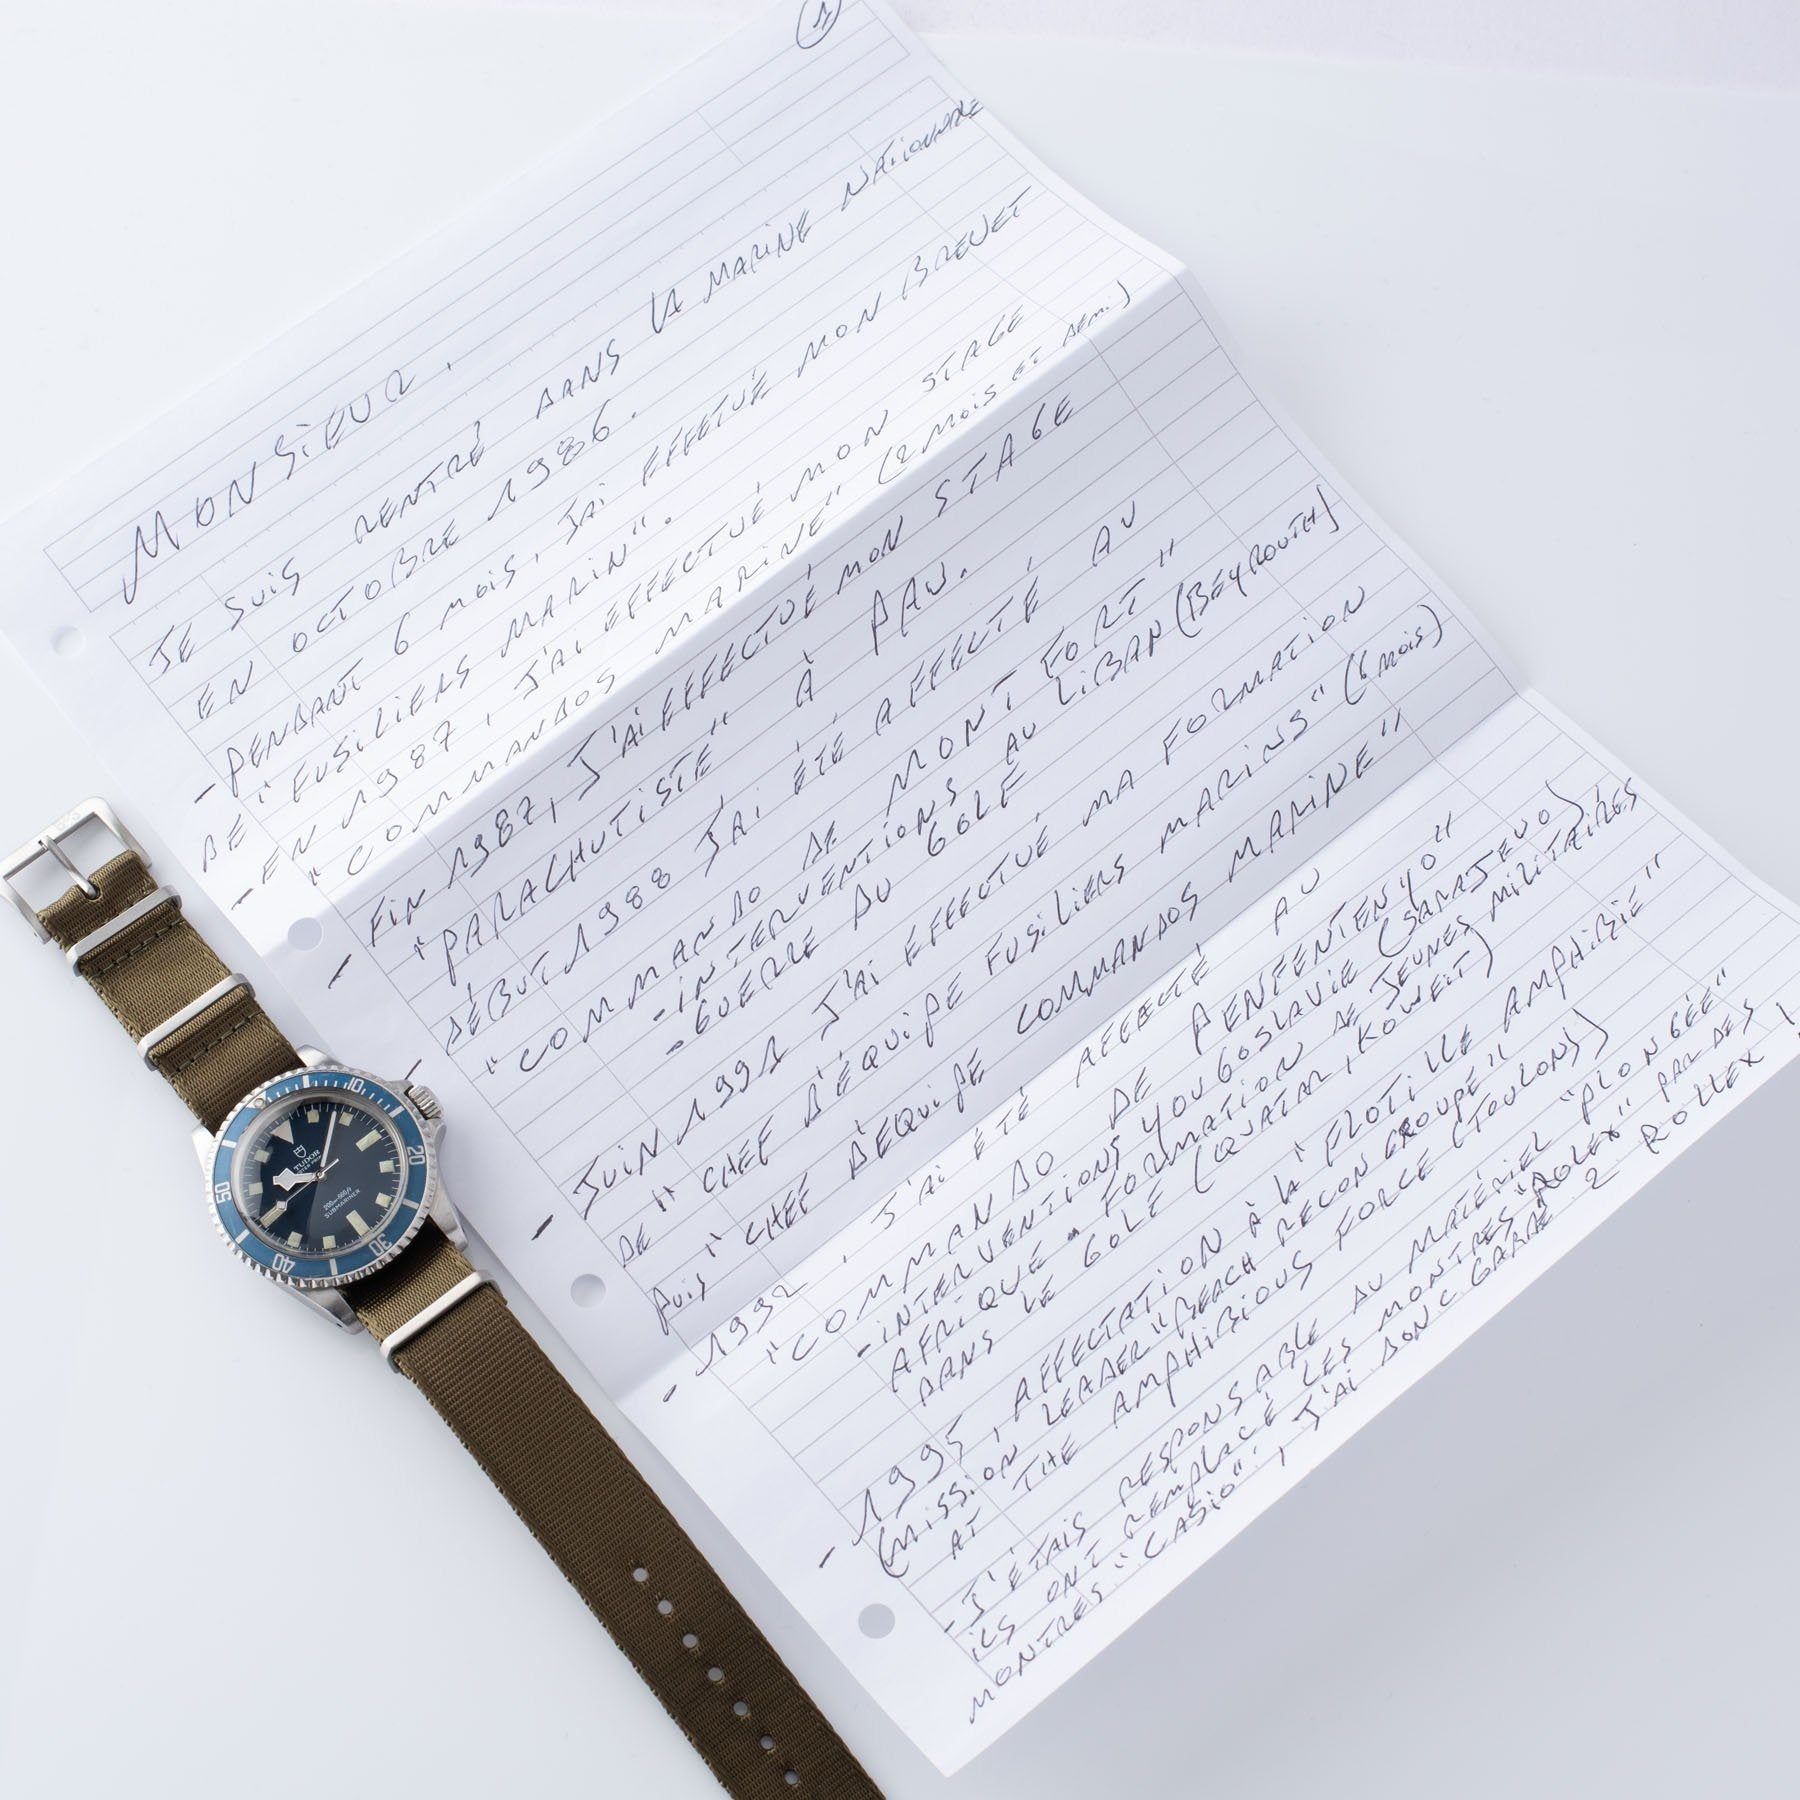 1
MONSIEUR,
JE SUIS RENTRÉ DANS LA MARINE NATIONALE
EN OCTOBRE 1986.
- PENDANT 6 MOIS, J'AI EFFECTUÉ MON BREVET
DE "FUSILIERS MARIN".
- EN 1987, J'AI EFFECTUÉ MON STAGE
"COMMANDOS MARINE" (2 MOIS ET DEMI)
- FIN 1987, J'AI EFFECTUÉ MON STAGE
"PARACHUTISTE" À PAU.
- DÉBUT 1988 J'AI ÉTÉ AFFECTÉ AU
"COMMANDO DE MONTFORT"
- INTERVENTIONS AU LIBAN (BEYROUTH)
- GUERRE DU GOLF
- JUIN 1991 J'AI EFFECTUÉ MA FORMATION
DE "CHEF D'ÉQUIPE FUSILIERS MARINS" (6 MOIS)
PUIS "CHEF D'ÉQUIPE COMMANDOS MARINE"
- 1992, J'AI ÉTÉ AFFECTÉ AU
"COMMANDO DE PENFENTENYO"
- INTERVENTIONS YOUGOSLAVIE (SARAJEVO),
AFRIQUE "FORMATION DE JEUNES MILITAIRES,
DANS LE GOLF (QUATAR, KOWEIT)
- 1995, AFFECTATION À LA "FLOTILLE AMPHIBIE"
(MISSION LEADER "BEACH RECON GROUPE"
AT THE AMPHIBIOUS FORCE (TOULONS)
- J'ÉTAIS RESPONSABLE DU MATÉRIEL "PLONGÉE"
ILS ONT REMPLACÉ LES MONTRES "ROLEX" PAR DES
MONTRES "CASIO", J'AI DONC GARDÉ 2 ROLLEX
TUDOR
200m=660ft
SUBMARINER
10
20
30
40
50